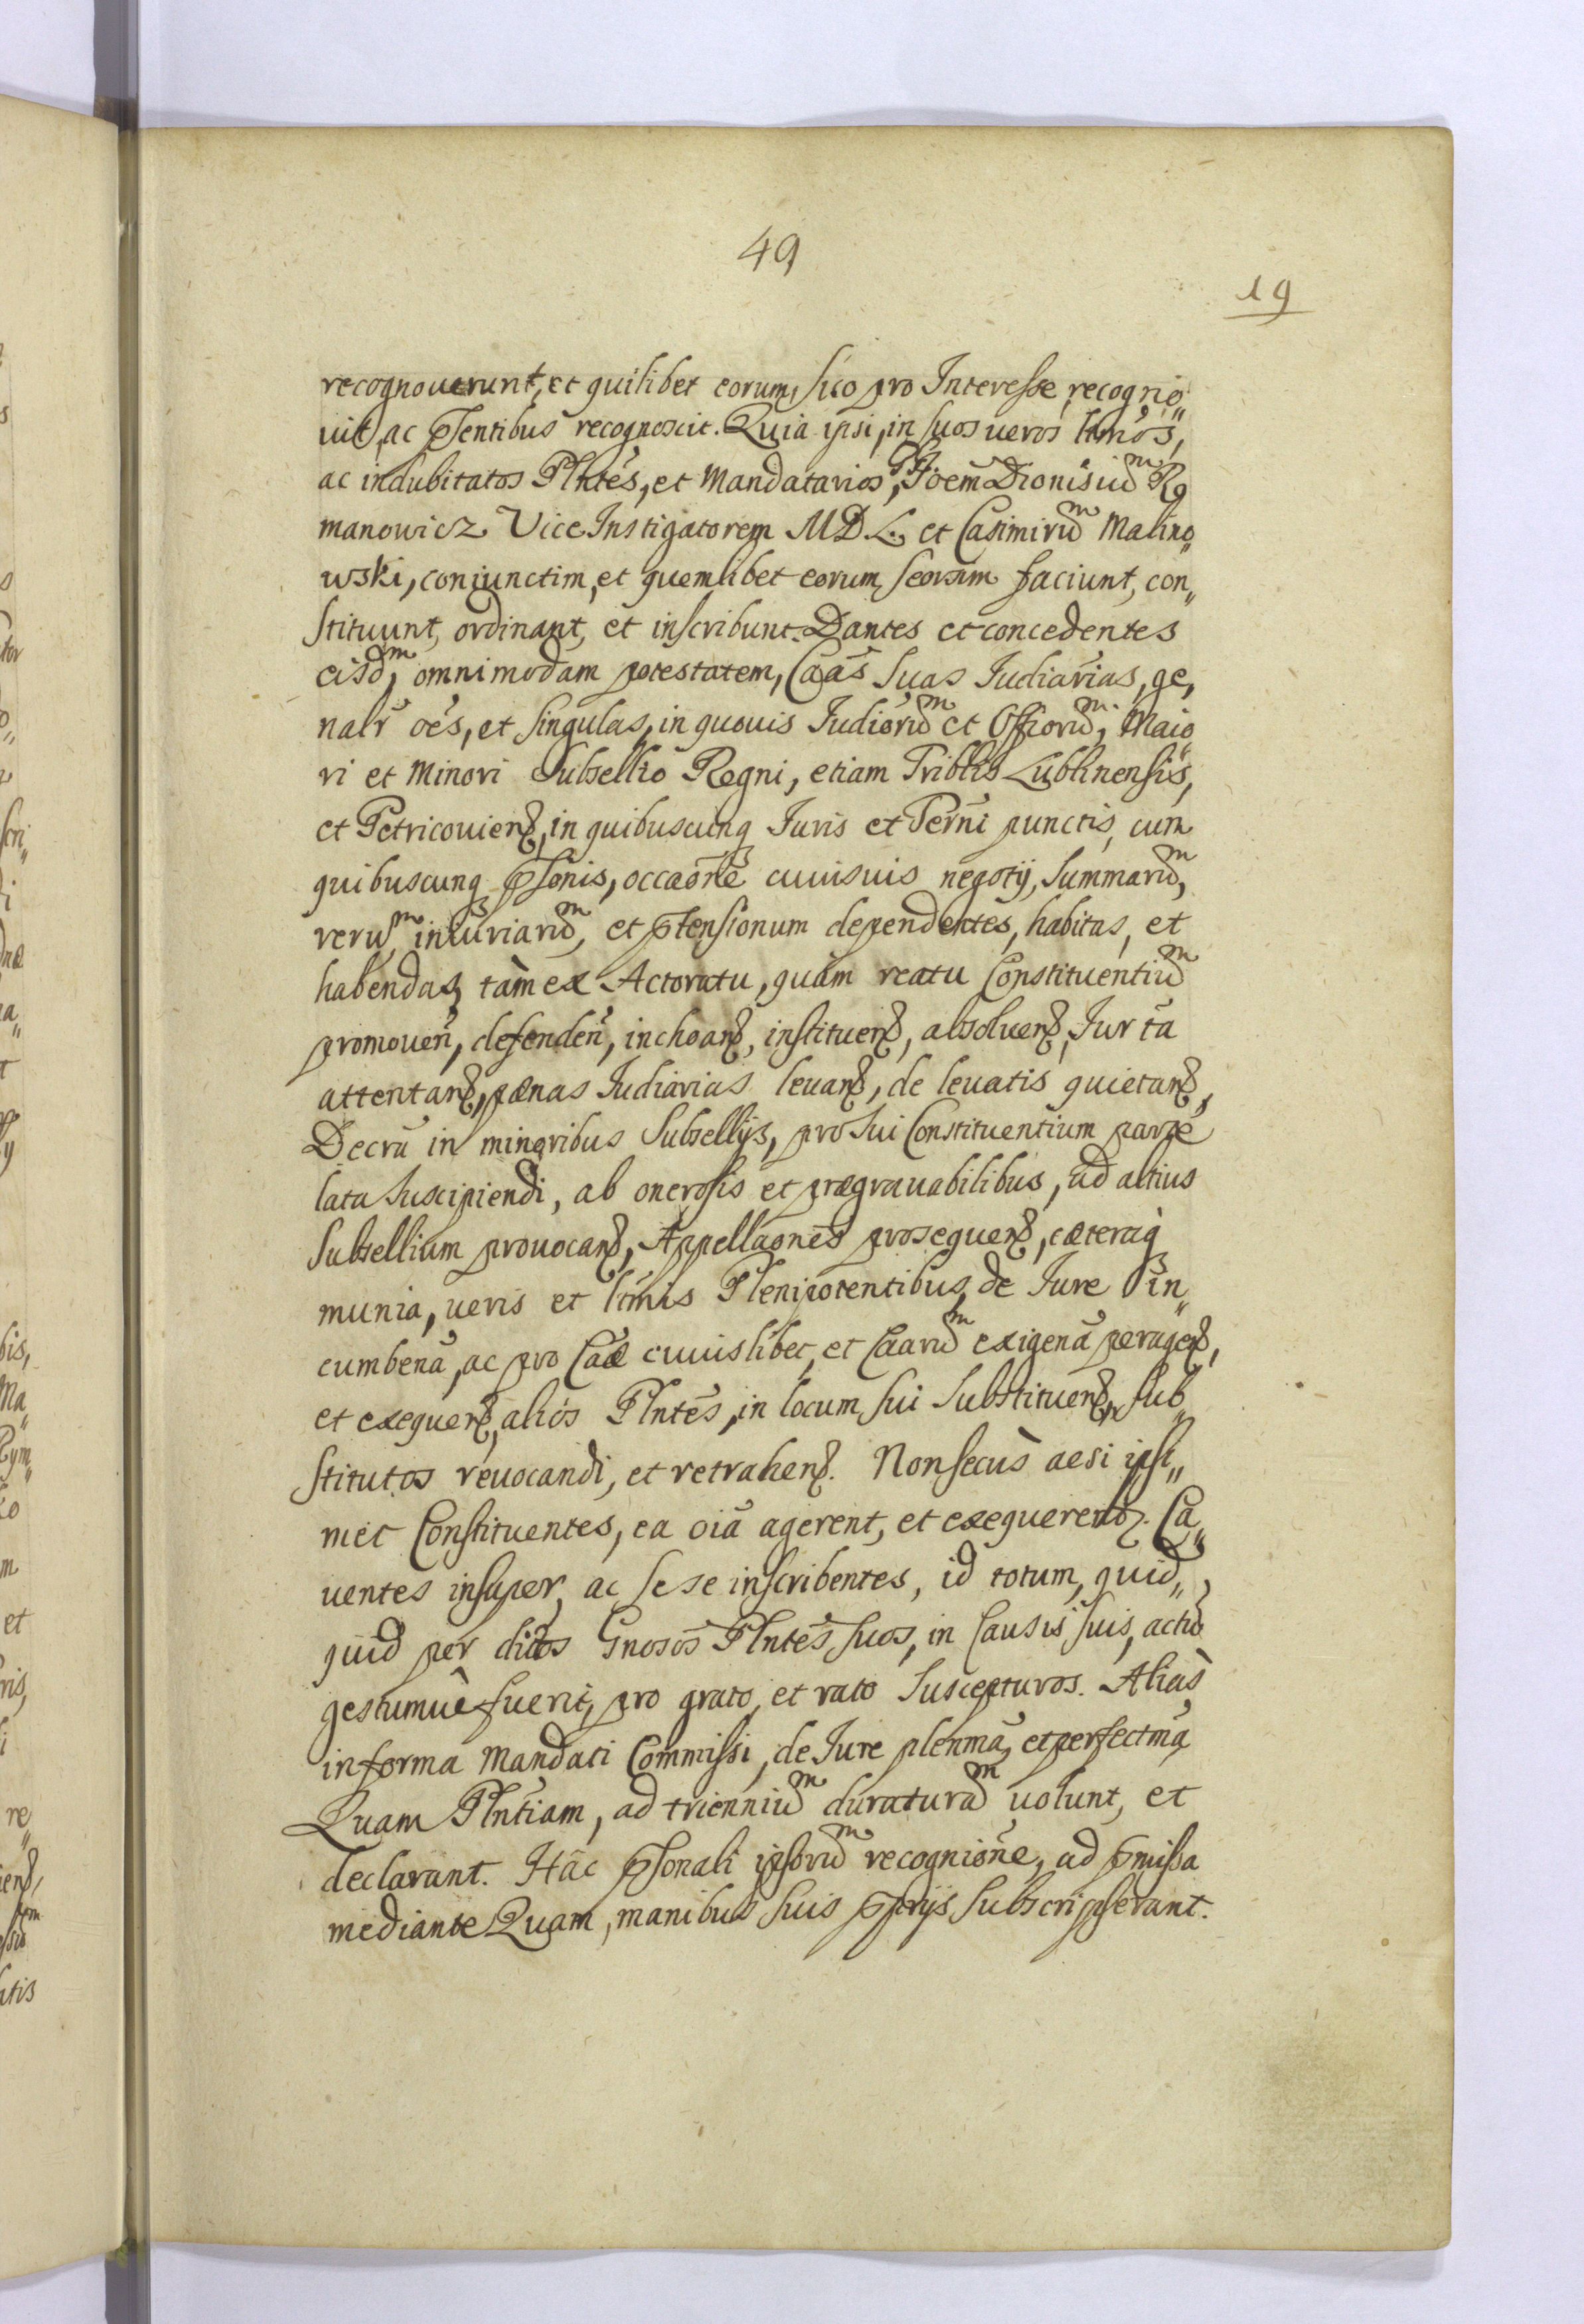 49
19
recognouerunt, et quilibet eorum, suo pro Interesse, recogno„
uit, ac pſentibus recognoscit. Quia ipsi, in suos ueros ltmos,
ac indubitatos Plntes, et Mandatarios, Joem Dionisiũm Ro„
manowicz Vice Instigatorem MDL. et Casimirũm Malino„
wski, coniunctim, et quemlibet eorum seorsim faciunt, con„
stituunt, ordinant, et inscribunt. Dantes et concedentes
eisdm, omnimodam potestatem, Cãas suas Iudiarias, ge„
nalr oẽs, et singulas, in quouis Iudiorũm et Offiorũm, Maio„
ri et Minori Subsellio Regni, etiam Tribtis Lublinensis,
et Petricouien, in quibuscunq Iuris et Terni punctis, cum
quibuscunq psonis, occaone cuiusuis negotij, summarũm,
rerũm iniuriarũm, et ptensionum dependentes, habitas, et
habendas, tàm ex Actoratu, quàm reatu Constituentiũm
promouen, defenden, inchoan, instituen, absoluen, Iur ta
attentan, pænas Iudiarias leuan, de leuatis quietan,
Decra in minoribus Subsellijs, pro sui Constituentium parte
lata suscipiendi, ab onerosis et prægrauabilibus, ad altius
Subsellium prouocan, Appellaones prosequen, cæteraq
munia, ueris et ltmis Plenipotentibus, de Iure in„
cumbena, ac pro Cãæ cuiuslibet, et Caarũm exigena peragen,
et exequen, alios Plntes, in locum sui substituen, sub„
stitutos reuocandi, et retrahen. Non secùs ac si ipsi„
met Constituentes, ea oia agerent, et exequerentur. Ca„
uentes insuper, ac sese inscribentes, id totum, quid„
quid per dictos Gnosos Plntes suos, in Causis suis, actũ
gestumuè fuerit, pro grato, et rato suscepturos. Aliàs
in forma Mandati Commissi, de Iure plenma, et perfectma
Quam Plntiam, ad trienniũm duraturãm uolunt, et
declarant. Hac psonali ipsorũm recognione, ad pmissa
mediante Quam, manibus suis pprijs subscripserant.